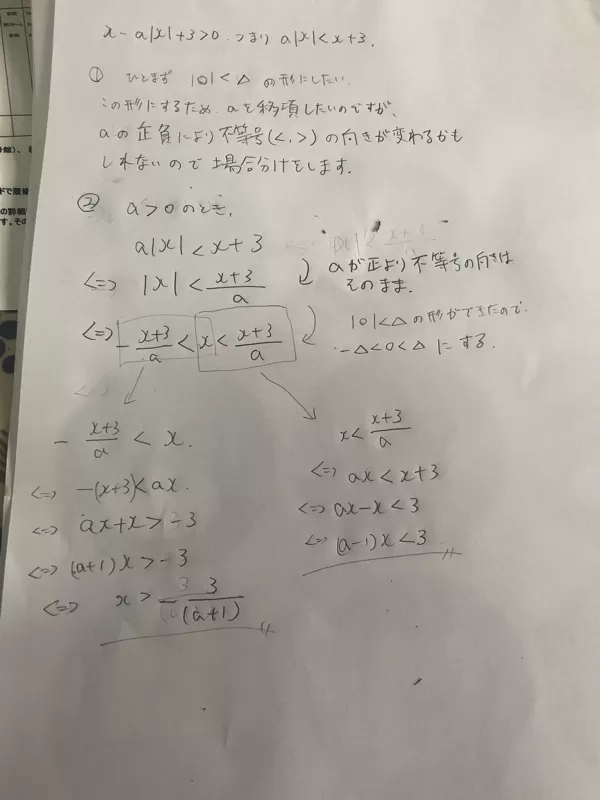 x - a|x| + 3 > 0 つまり a|x| < x+3.
① ひとまず |○| < △ の形にしたい.
この形にするため aを移項したいのですが、
aの正負により不等号(<,>)の向きが変わるかも
しれないので場合分けをします.
② a>0のとき,
a|x| < x+3
aが正より不等号の向きは
そのまま.
<=> |x| < \frac{x+3}{a}
|○|<△の形ができたので
-△<○<△にする.
<=> -\frac{x+3}{a} < x < \frac{x+3}{a}
-\frac{x+3}{a} < x.
<=> -(x+3) < ax.
<=> ax+x > -3
<=> (a+1)x > -3
<=> x > -\frac{3}{(a+1)}
x < \frac{x+3}{a}
<=> ax < x+3
<=> ax-x < 3
<=> (a-1)x < 3